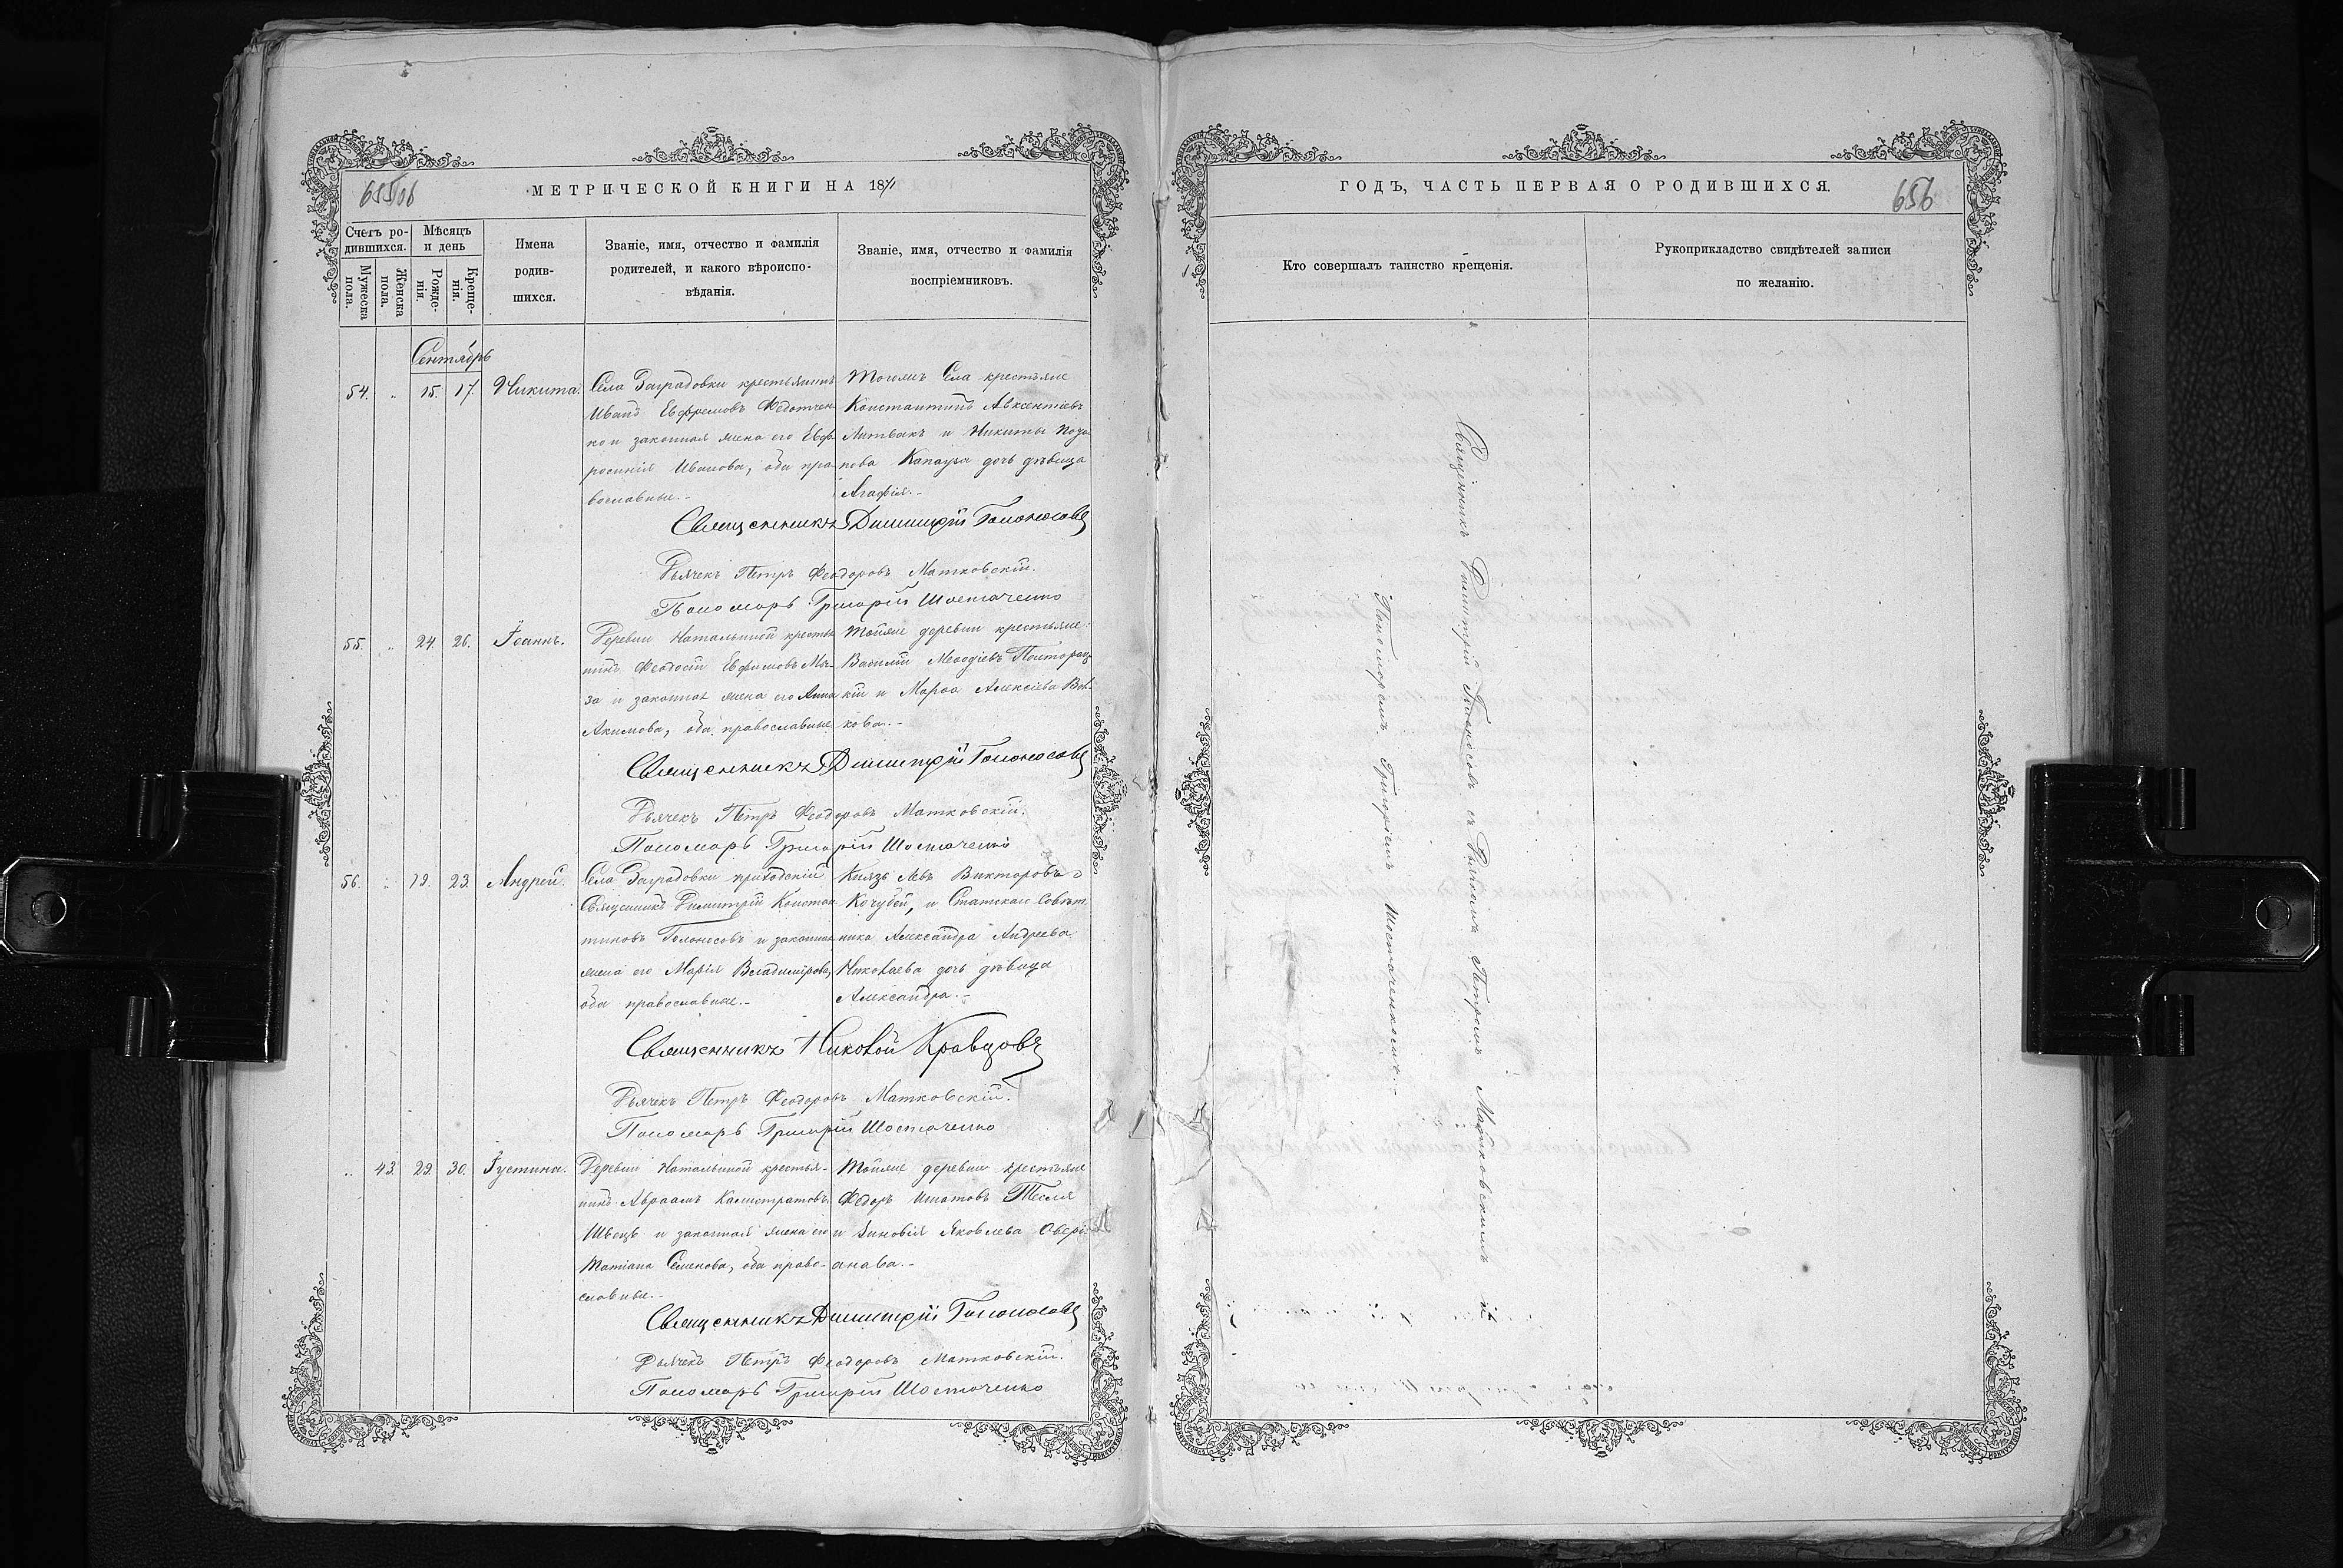 655об
МЕТРИЧЕСКОЙ КНИГИ НА 1871
Счетъ ро-
дившихся.
Мужеска
пола.
Женска
пола.
Мѣсяцъ
и день
Рожде-
нія.
Креще-
нія.
Имена
родив-
шихся.
Званіе, имя, отчество и фамилія
родителей, и какого вѣроиспо-
вѣданія.
Званіе, имя, отчество и фамилія
воспріемниковъ.
Сентябрь
54. " 15. 17. Никита.
Села Заградовки крестьянинъ
Иванъ Евфремовъ Федотчен-
ко и законная жена его Евф-
росинія Иванова, оба пра-
вославные.-
Тогожъ Села крестьяне
Константинъ Авксентіевъ
Литвакъ и Никиты
дочь дѣвица
Агафія.-
Священникъ Димитрій Голоносовъ
Дьячекъ Петръ Феодоровъ Матковскій.
Пономарь Григорій Шостаченко
55. " 24. 26. Іоаннъ.
Деревни Натальиной крестья-
нинъ Феодосій Евфимовъ
за и законная жена его Анна
Акимова, оба православные.
Тойже деревни крестьяне:
Василій Меѳодіевъ Полторац-
кій и Марѳа Алексіева Вов-
кова.-
Священникъ Димитрій Голоносовъ
Дьячекъ Петръ Феодоровъ Матковскій.
Пономарь Григорій Шостаченко
56. " 19. 23. Андрей.
Села Заградовки приходскій
Священникъ Димитрій Констан-
тиновъ Голоносовъ и законная
жена его Марія Владимірова,
оба православные.-
Князь Левъ Викторовъ
Кочубей, и Статскаго Совѣт-
ника Александра Андреева
Николаева дочь дѣвица
Александра.-
Священникъ Николай Кравцовъ
Дьячекъ Петръ Феодоровъ Матковскій.
Пономарь Григорій Шостаченко
" 43. 29. 30. Іустина.
Деревни Натальиной крестья-
нинъ Авраамъ Калистратовъ
Швецъ и законная жена его
Татіана Семенова, оба право-
славные.-
Тойже деревни крестьяне
Федоръ Игнатовъ Тесля
и Зиновія Яковлева Овері-
анава.-
Священникъ Димитрій Голоносовъ
Дьячекъ Петръ Феодоровъ Матковскій.
Пономарь Григорій Шостаченко
ГОДЪ, ЧАСТЬ ПЕРВАЯ О РОДИВШИХСЯ.
656
Кто совершалъ таинство крещенія.
Рукоприкладство свидѣтелей записи
по желанію.
Священникъ Димитрій Голоносовъ съ Дьячкомъ Петромъ Матковскимъ и
Пономоремъ Григоріемъ Шостаченкомъ.-